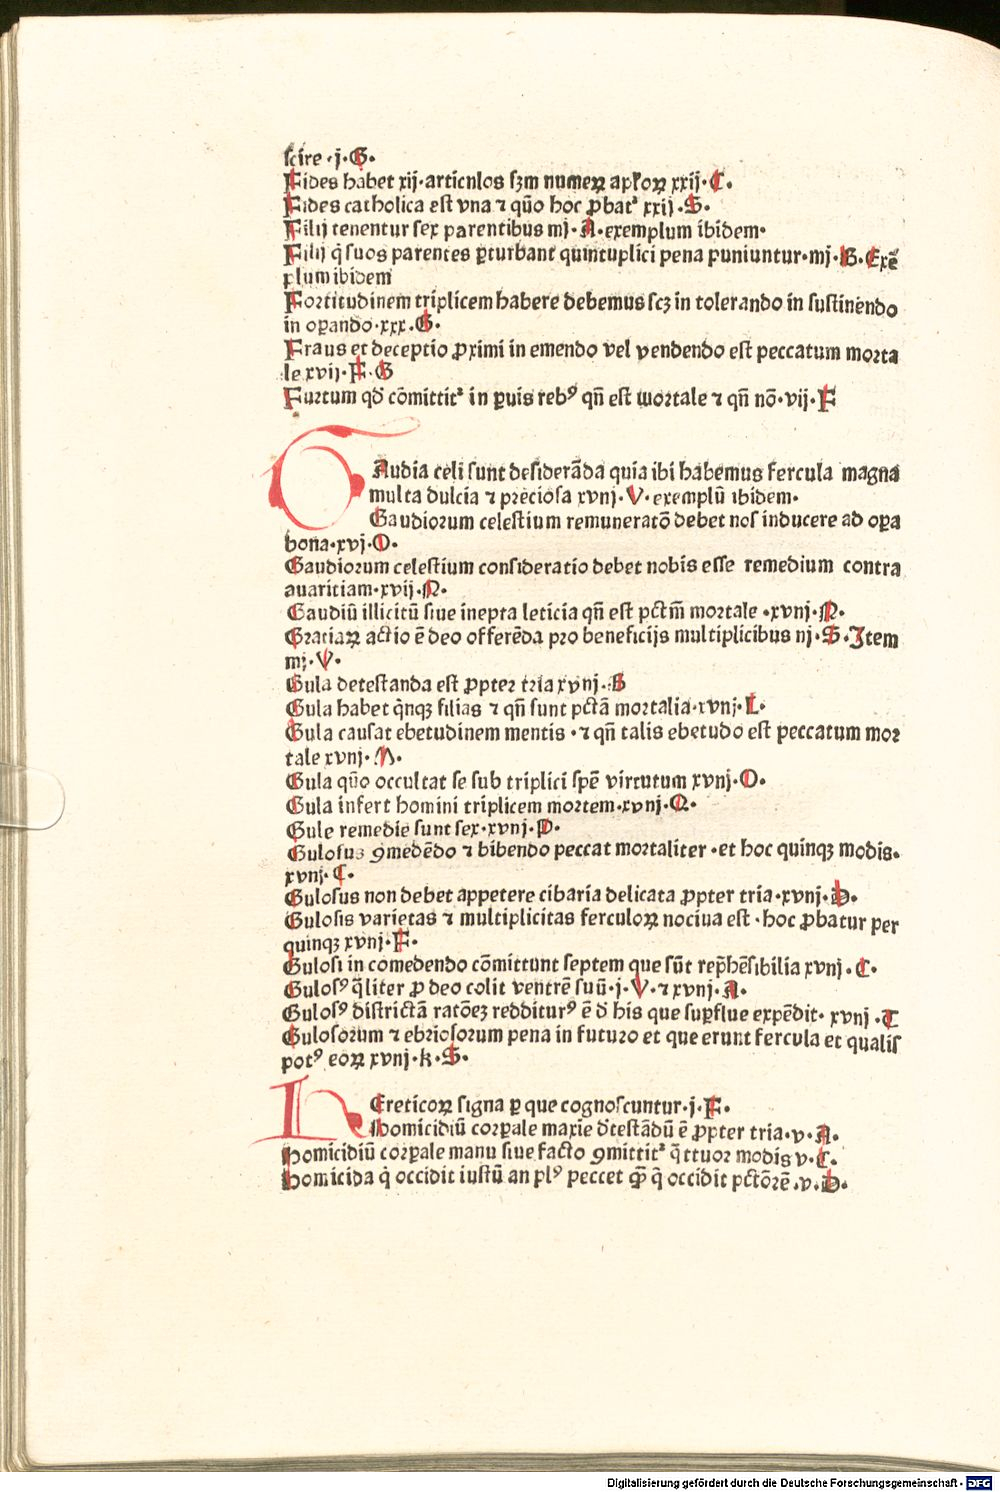 ſcire ·j·G·
Fides habet xij·articnlos ſꝫm numeꝝ apľoꝝ xxij·C·
Fides catholica eſt vna ⁊ qūo hoc ꝓbatᷣ xxij·S·
Filij tenentur ſex parentibus mj·A·exemplum ibidem·
Filij q̄ ſuos parentes ꝑturbant quintuplici pena puniuntur·mj·B·Exē
plum ibidem
Fortitudinem triplicem habere debemus ſcꝫ in tolerando in ſuſtinendo
in oꝑando·xxx·G·
Fraus et deceptio ꝓximi in emendo vel vendendo eſt peccatum morta
le xvij·F·G
Furtum qd̄ cōmittitᷣ in ꝑuis rebꝰ qn̄ eſt mortale ⁊ qn̄ nō·vij·F
GAudia celi ſunt deſiderāda quia ibi habemus fercula magna
multa dulcia ⁊ precioſa xvnj·V·exemplū ibidem·
Gaudiorum celeſtium remuneratō debet nos inducere ad oꝑa
bona·xvj·O·
Gaudiorum celeſtium conſideratio debet nobis eſſe remedium contra
auaritiam·xvij·N·
Gaudiū illicitū ſiue inepta leticia qn̄ eſt pctm̄ mortale ·xvnj·N·
Gratiaꝝ actio ē deo offerēda pro beneficijs multiplicibus nj·S·Item
mj·V·
Gula deteſtanda eſt ꝓpter tria xvnj·B
Gula habet q̄nqꝫ filias ⁊ qn̄ ſunt pctā mortalia·xvnj·L·
Gula cauſat ebetudinem mentis ·⁊ qn̄ talis ebetudo eſt peccatum mor
tale xvnj·M·
Gula qūo occultat ſe ſub triplici ſpē virtutum xvnj·O·
Gula infert homini triplicem mortem·xvnj·Q·
Gule remedie ſunt ſex·xvnj·P·
Guloſus ꝯmedēdo ⁊ bibendo peccat mortaliter ·et hoc quinqꝫ modis·
xvnj·C·
Guloſus non debet appetere cibaria delicata ꝓpter tria·xvnj·D·
Guloſis varietas ⁊ multiplicitas ferculoꝝ nociua eſt·hoc ꝓbatur per
quinqꝫ xvnj·F·
Guloſi in comedendo cōmittunt ſeptem que ſūt rep̄hēſibilia xvnj·C·
Guloſꝰ q̄liter ꝓ deo colit ventrē ſuū·j·V·⁊ xvnj·A·
Guloſꝰ diſtrictā ratōeꝫ redditurꝰ ē d̄ his que ſuꝑflue expēdit· xvnj·T
Guloſorum ⁊ ebrioſorum pena in futuro et que erunt fercula et qualis
potꝰ eoꝝ xvnj·k·S·
HEreticoꝝ ſigna ꝑ que cognoſcuntur·j·F·
Homicidiū corꝑale maxie d̄teſtādū ē ꝓpter tria·v·A·
Homicidiū corꝑale manu ſiue facto ꝯmittitᷣ q̄ttuor modis v·C·
Homicida q̇ occidit iuſtū an plꝰ peccet qꝫ̄ q̇ occidit pctōrē·v·D·
Digitalisierung gefördert durch die Deutsche Forschungsgemeinschaft · DFG